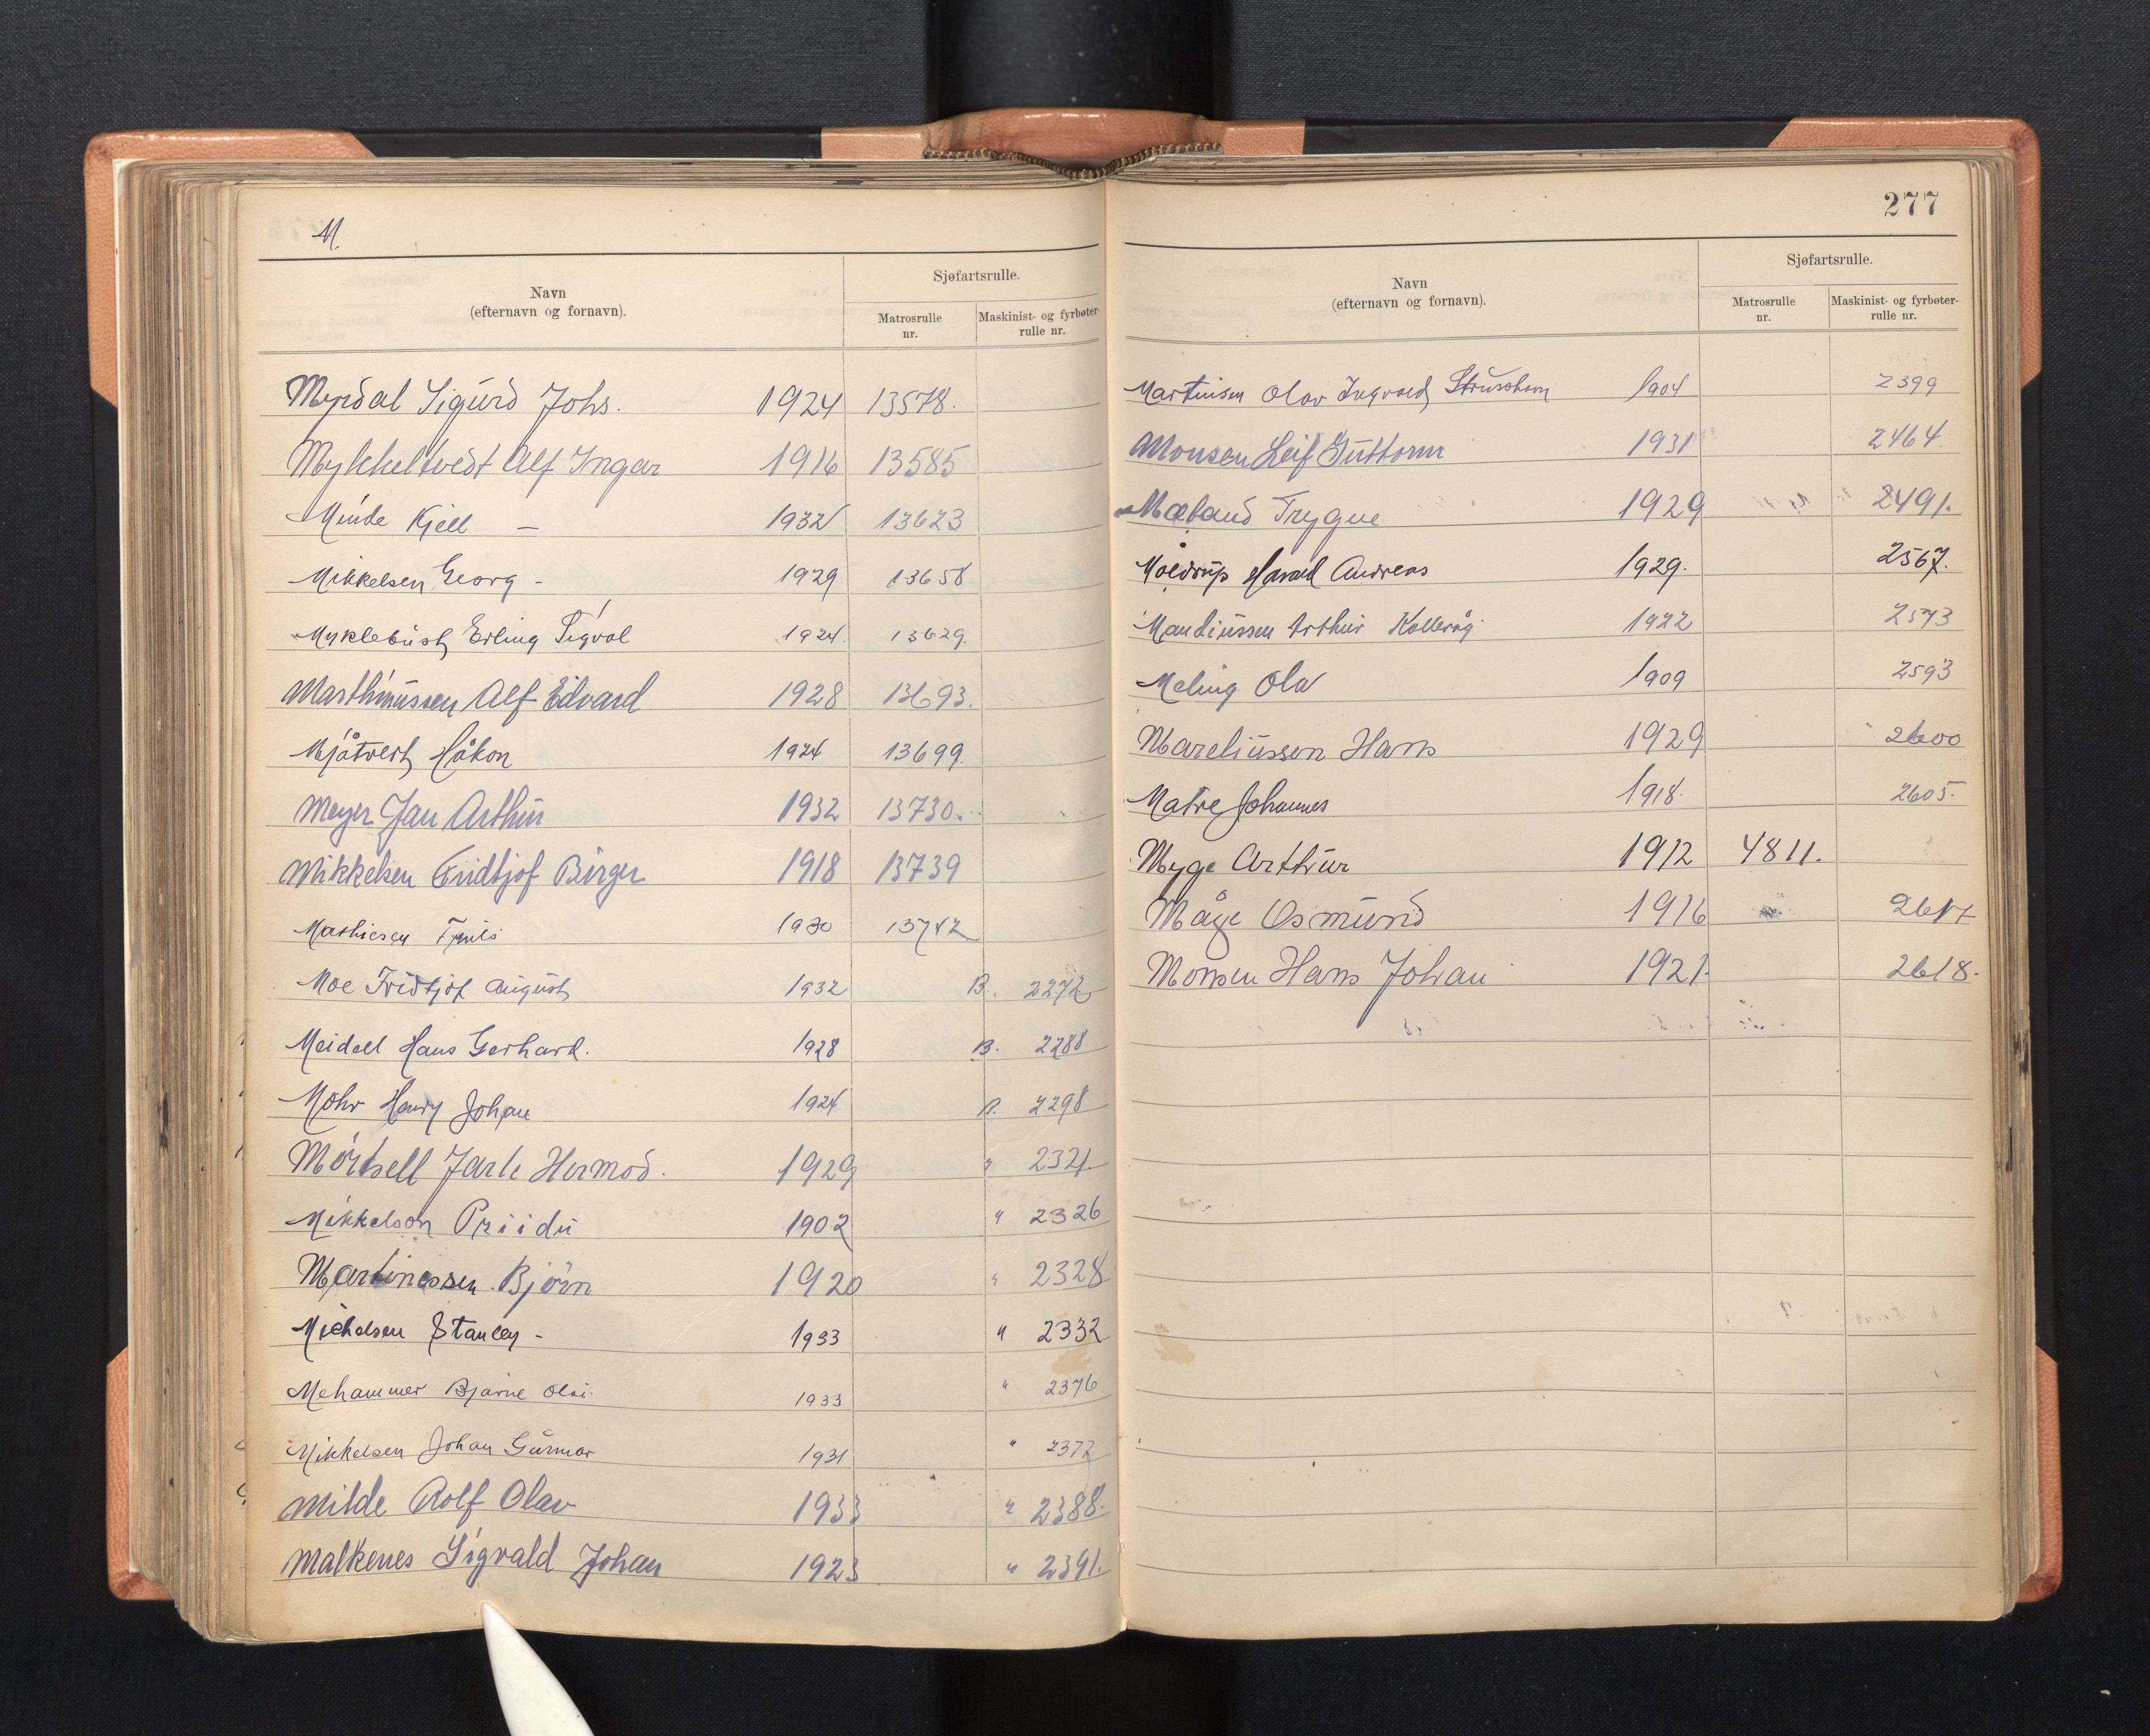 M.
Navn
(efternavn og fornavn).
Sjøfartsrulle.
Matrosrulle
nr.
Maskinist- og fyrbøter-
rulle nr.
Myrdal Sigurd Johs. 1924 13578.
Mykkeltvedt Alf Ingar 1916 13585
Minde Kjell — 1932 13623
Mikkelsen Georg - 1929 13658
Myklebust Erling Sigval 1924. 13629.
Marthinussen Alf Edvard 1928 13693.
Mjåtveit Håkon 1924 13699.
Meyer Jan Arthur 1932 13730.
Mikkelsen Fridtjof Birger 1918 13739
Mathiesen 1930 13742
Moe Fridtjof August 1932 B. 2272
Meidell Hans Gerhard. 1928 B. 2288
Mohr Henry Johan 1924 B. 2298
Mörtsell Jarle Hermod. 1929 " 2321
Mikkelson Priidu 1902 " 2326
Martinessen Björn 1920 " 2328
Michelsen Stanley - 1933 " 2332
Mehammer Bjarne 1933 " 2376
Mikkelsen Johan Gunnar 1931 " 2377
Milde Rolf Olav 1933 " 2388.
Malkenes Sigvald Johan 1923 " 2391.
277
Navn
(efternavn og fornavn).
Sjøfartsrulle.
Matrosrulle
nr.
Maskinist- og fyrbøter-
rulle nr.
Martinsen Olav Ingvald Struxshavn 1904 2399
Monsen Leif Guttorm 1931 2464.
Mæland Trygve 1929 2491.
Moldrup Harald Andreas 1929. 2567.
Mandiussen Arthur Kollevåg 1922 2573
Meling Ola 1909 2593
Mareliussen Hans 1929 2600
Matre Johannes 1918. 2605.
Myge Arthur 1912 4811.
Måge Osmund 1916
Monsen Hans Johan 1921 2618.